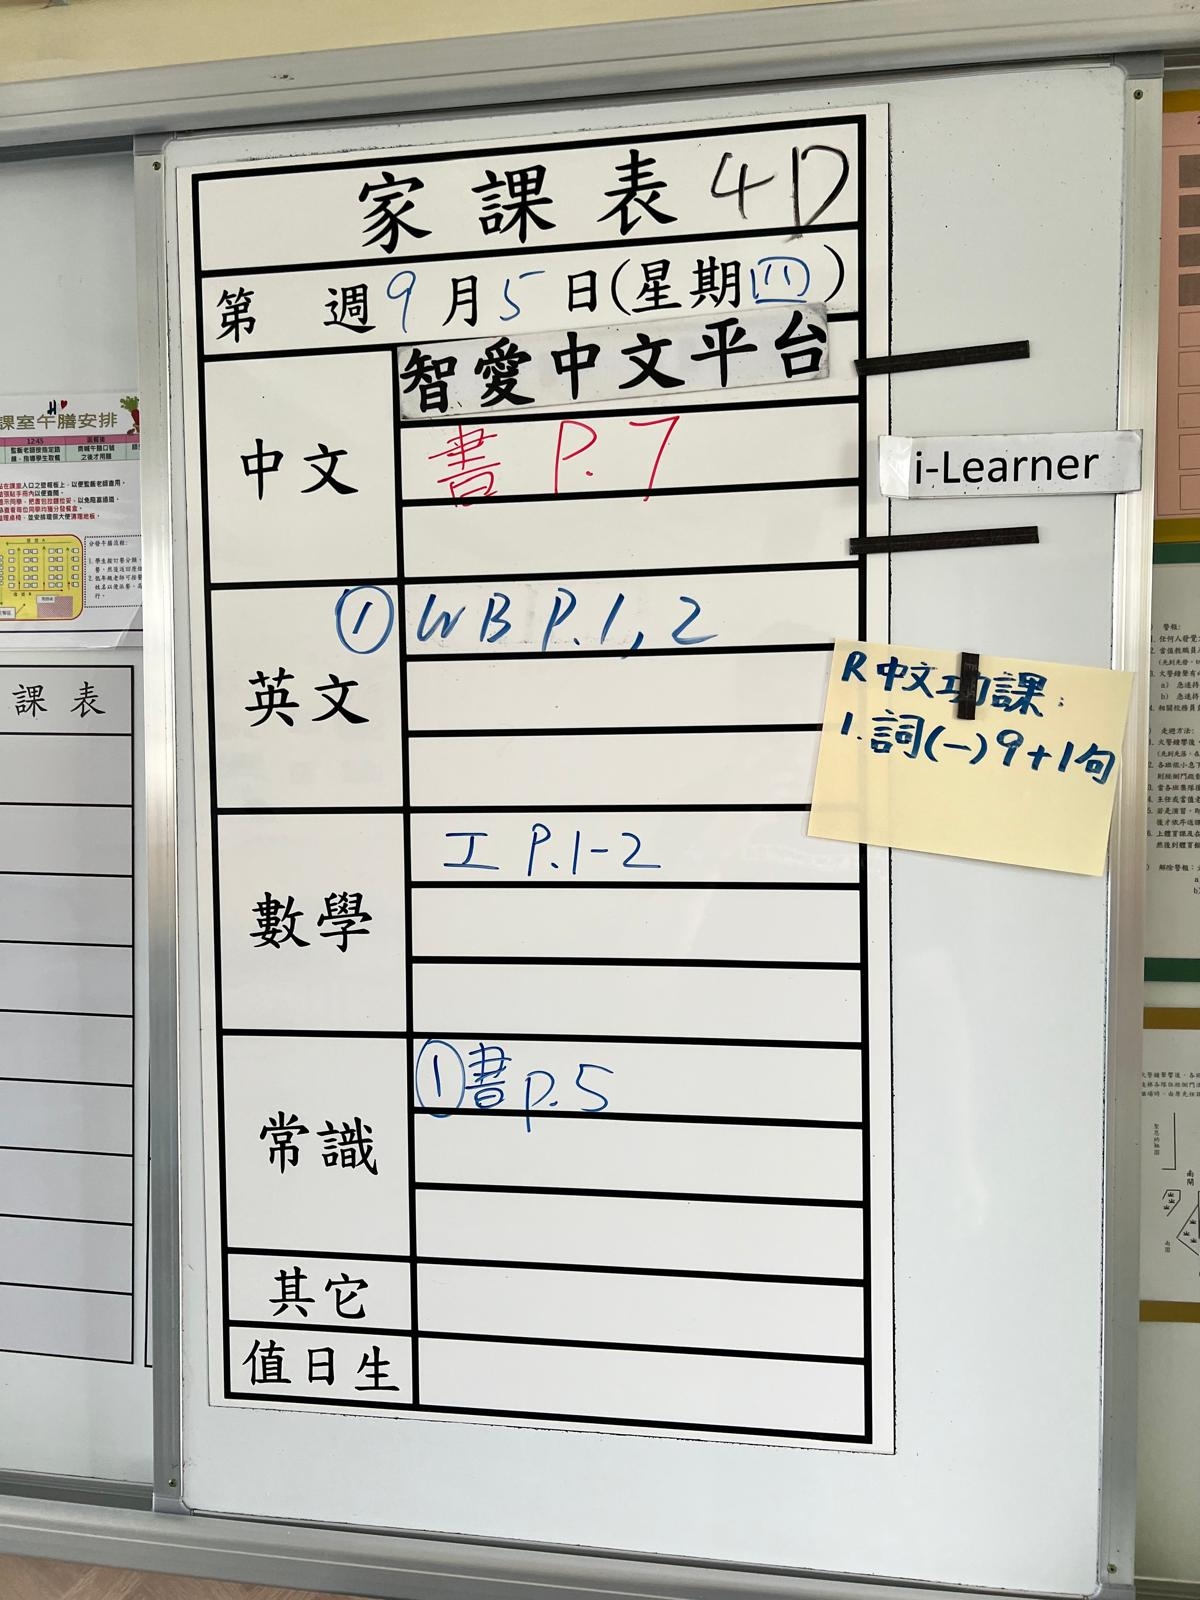 家課表 4D
第 週 9月5日(星期四)
中文
智愛中文平台
書 P.7
i-Learner
英文
① WB P.1, 2
R 中文功課:
1. 詞(一)9+1句
數學
工 P.1-2
常識
① 書 p.5
其它
值日生
課室午膳安排
12:45
課表